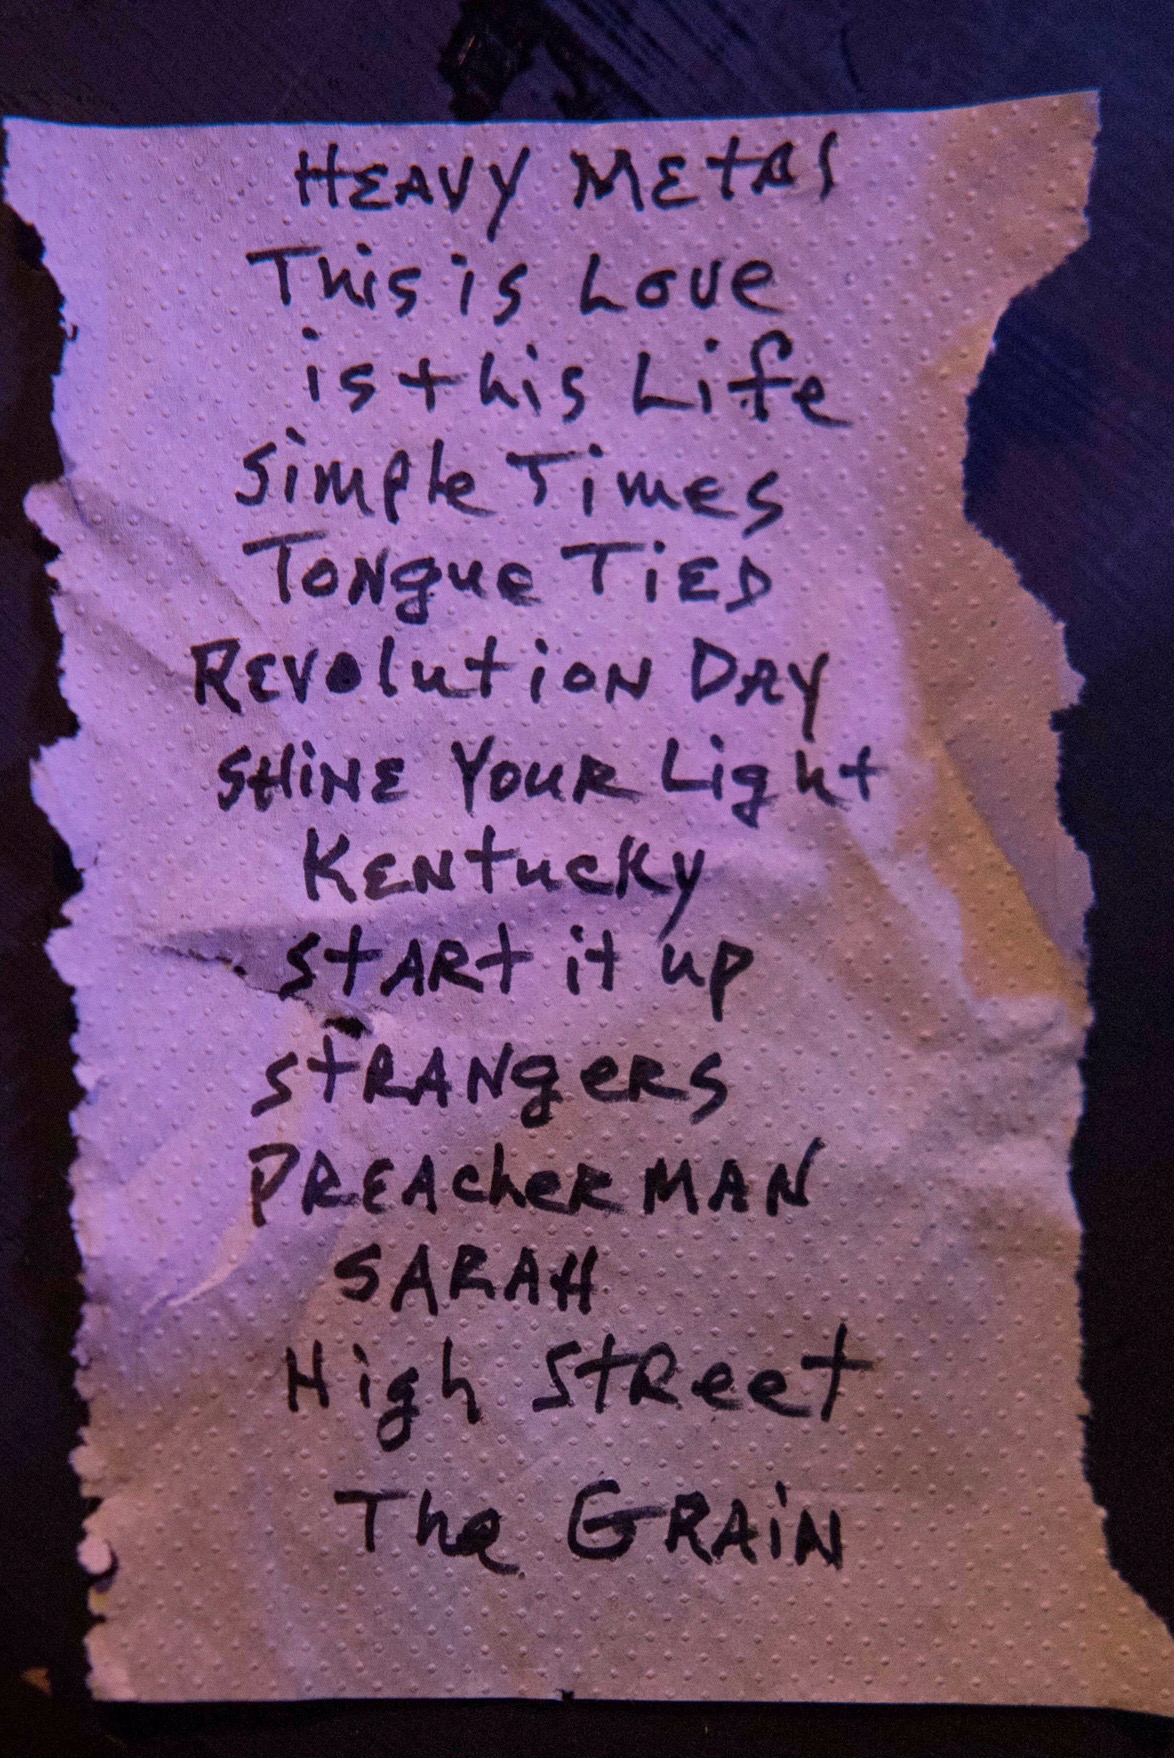 HEAVY METAL
This is Love
is this Life
Simple Times
Tongue TiED
REVolution DAY
SHINE YOUR Light
KENtucky
START it up
STRANgeRS
PREAcheR MAN
SARAH
High StReet
The GRAiN